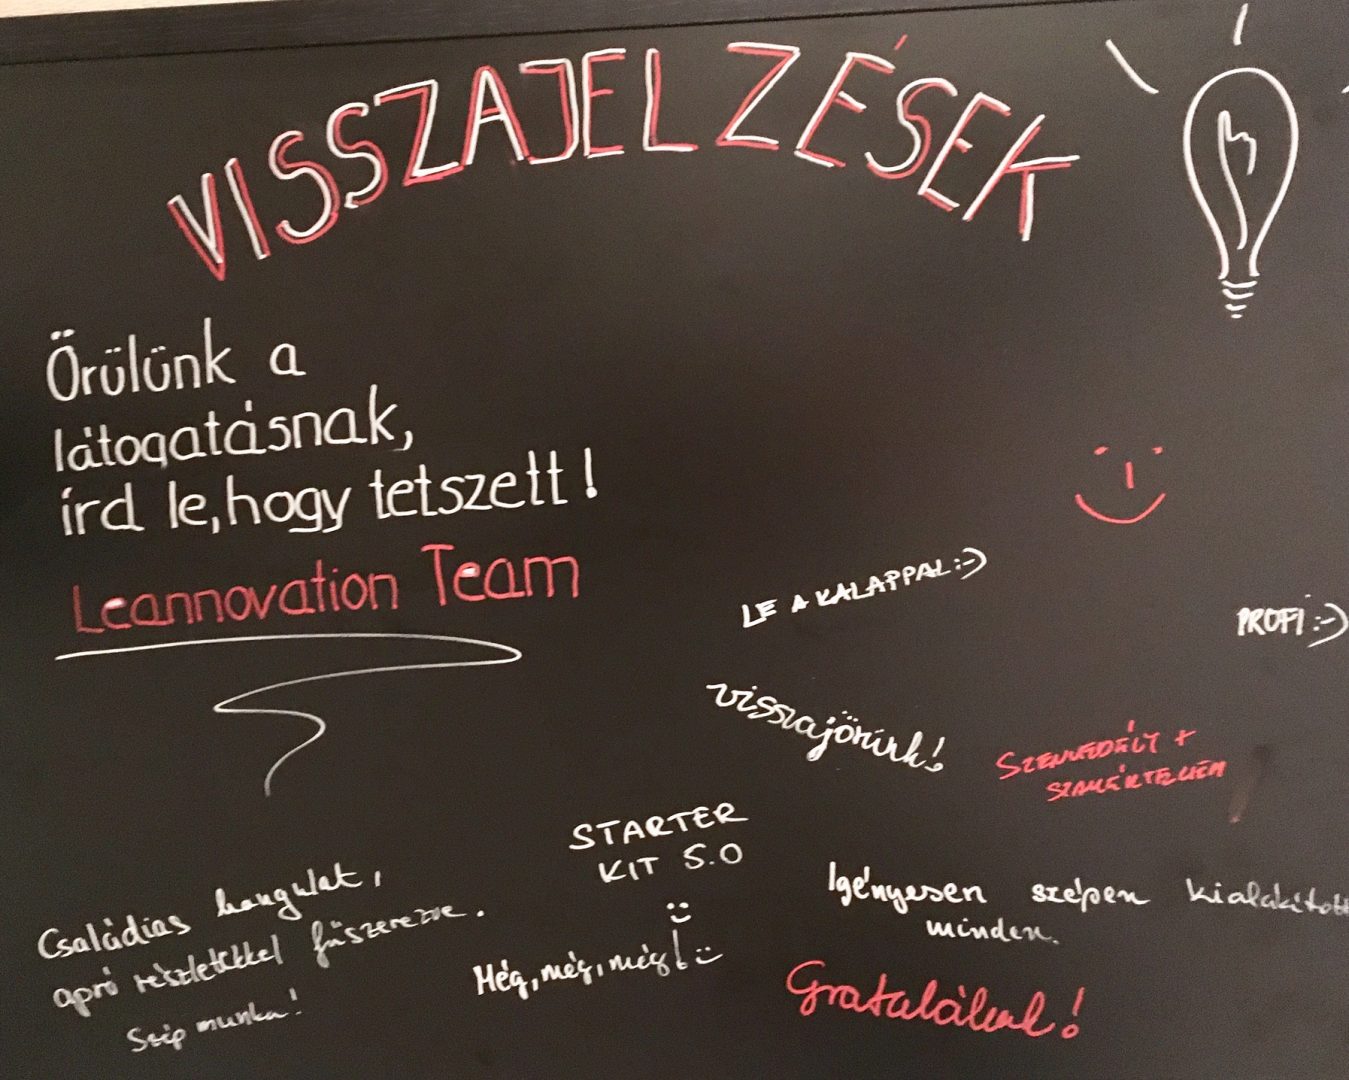 VISSZAJELZÉSEK
Örülünk a
látogatásnak,
írd le, hogy tetszett!
Leannovation Team
LE A KALAPPAL :-)
PROFI :-)
visszajövünk!
SZENVEDÉLY +
SZAKÉRTELEM
STARTER
KIT 5.0
Még, még, még!
Családias hangulat,
apró részletekkel fűszerezve.
Szép munka!
Igényesen szépen kialakított
minden.
Gratulálunk!